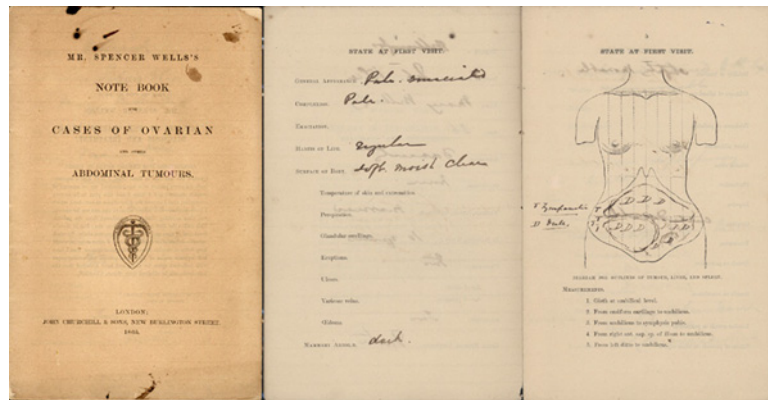 MR. SPENCER WELLS'S
NOTE BOOK
FOR
CASES OF OVARIAN
AND OTHER
ABDOMINAL TUMOURS.
LONDON:
JOHN CHURCHILL & SONS, NEW BURLINGTON STREET.
STATE AT FIRST VISIT.
GENERAL APPEARANCE. Pale. emaciated
COMPLEXION. Pale.
EMACIATION.
HABITS OF LIFE. regular
SURFACE OF BODY. Soft. moist Clear
Temperature of skin and extremities.
Perspiration.
Glandular swellings.
Eruptions.
Ulcers.
Varicose veins.
Œdema.
MAMMARY AREOLA. dark.
STATE AT FIRST VISIT.
T Tympanitic
D Dull.
T T T
D D D
D D D
DIAGRAM FOR OUTLINES OF TUMOUR, LIVER, AND SPLEEN.
MEASUREMENTS.
1. Girth at umbilical level.
2. From ensiform cartilage to umbilicus.
3. From umbilicus to symphysis pubis.
4. From right ant. sup. sp. of ilium to umbilicus.
5. From left ditto to umbilicus.